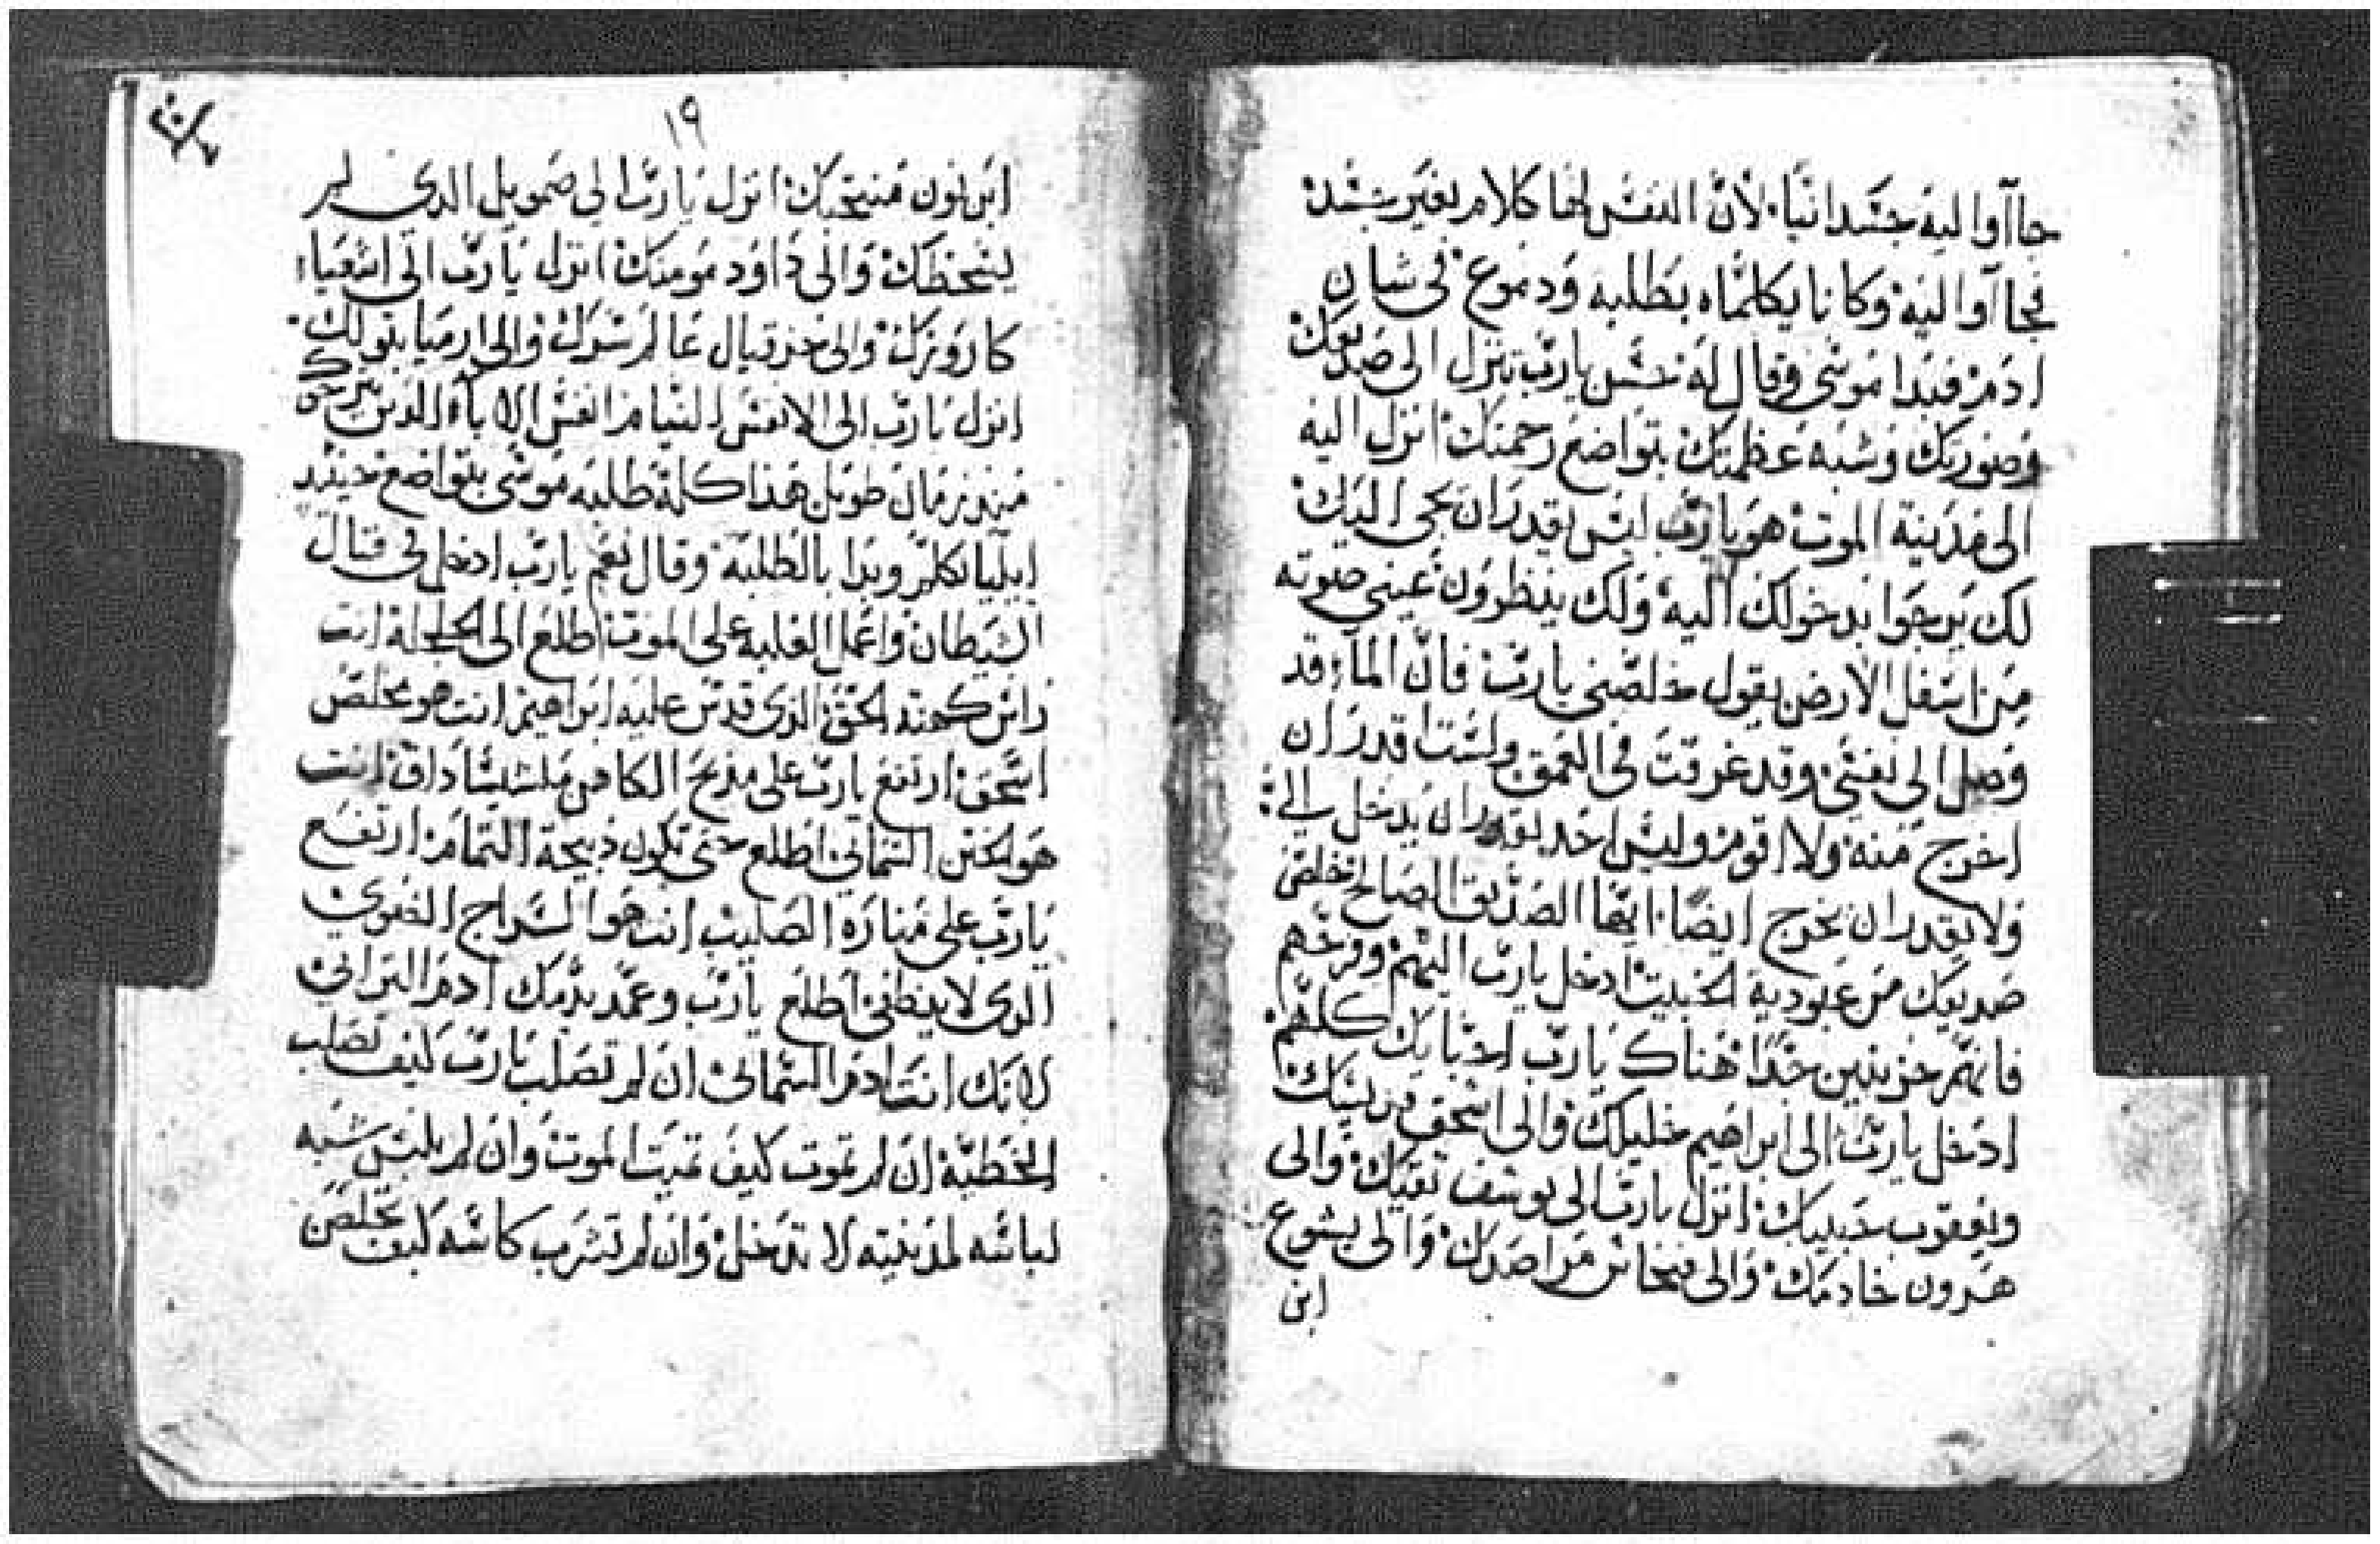 جاآوا اليه جسدانيا لأن النفس لها كلام بغير جسد
فجاآوا اليه وكانا يكلماه بطلبه ودموع في شان
ادم فبدا موسى وقال له حسن يارب تنزل الى صديقك
وصورتك وشبه عظمتك بتواضع رحمتك انزل اليه
الى مدينة الموت هو يارب ليس يقدر ان يجى اليك
لك يرجوا بدخولك اليه ولك ينظرون عيني صوته
من اسفل الارض يقول خلصني يارب فان الماء قد
وصل الى نفسي وقد غرقت في العمق ولست اقدر ان
اخرج منه ولا اقوم وليس احد يقدر ان يدخل الي
ولا يقدر ان يخرج ايضا ايها الصديق الصالح خلص
صديقك من عبودية الخبيث ادخل يارب اليهم وفرحهم
فانهم حزينين جدا هناك يارب احبابك كلهم
ادخل يارب الى ابراهيم خليلك والى اسحق
ويعقوب حبيبك انزل يارب الى يوسف نقيك والى
هرون خادمك والى فينحاس والى يشوع
ابن
١٩
ابن نون منتجبك انزل يارب الى صمويل الدى لم
يسخطك والى داود مومنك انزل يارب الى اشعياء
كاروزك والى حزقيال عالم سرك والى ارميا بتولك
انزل يارب الى الانفس الابآء الدين
مند زمان طويل هذا كله طلبه موسى بتواضع حينيد
ايليا تكلم وبدا بالطلبة وقال نعم يارب ادخل في قتال
الشيطان واعمل الغلبه على الموت اطلع الى الجلجلة انت
راس كهنة الحق الدى قدس عليه ابراهيم انت هو مخلص
اسحق ارتفع يارب على مذبح الكاهن ملشيساداق انت
هو السماني اطلع حتى تكون ذبيحة التمام ارتفع
يارب على منارة الصليب انت هو السراج الضوي
الدى لا ينطفي اطلع يارب وعمد بدمك ادم الترابي
لانك انت ادم السماني ان لم تصلب يارب كيف تصلب
الخطية ان لم تموت كيف تميت الموت وان لم تلبس شبه
لباسه لمدينته لا تدخل وان لم تشرب كاسه كيف تخلص